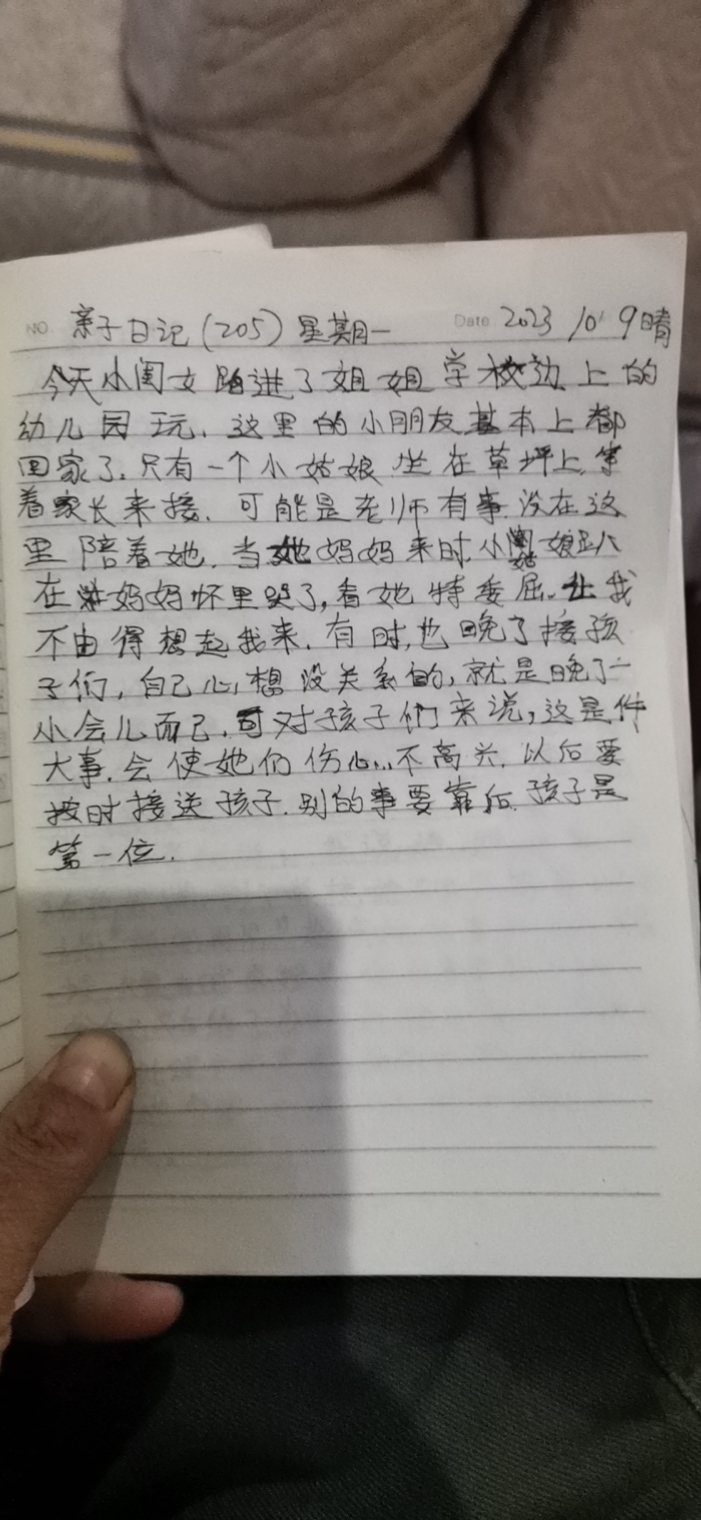 NO. 亲子日记(205)星期一 Date 2023 10 9晴
今天小闺女跑进了姐姐学校边上的
幼儿园玩,这里的小朋友基本上都
回家了,只有一个小姑娘坐在草坪上,等
着家长来接,可能是老师有事没在这
里陪着她,当她妈妈来时,小姑娘趴
在妈妈怀里哭了,看她特委屈.让我
不由得想起我来,有时,也晚了接孩
子们,自己心想没关系的,就是晚了一
小会儿而已,可对孩子们来说,这是件
大事,会使她们伤心...不高兴,以后要
按时接送孩子.别的事要靠后,孩子是
第一位.